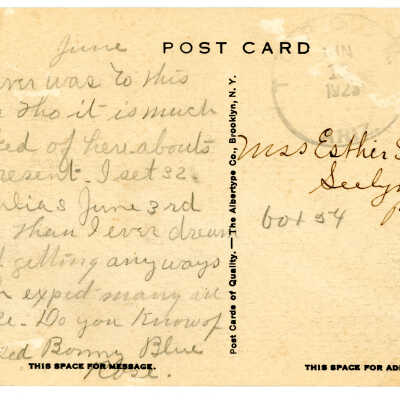 POST CARD
June
ver was to this
tho it is much
ed of hereabouts
resent. I set 32
lias June 3rd
than I ever dream
getting anyways
expect many all
e. Do you know of
ed Bonny Blue
Rose.
THIS SPACE FOR MESSAGE.
Post Cards of Quality. — The Albertype Co., Brooklyn, N. Y.
1923
Miss Esther
Seely
box 54
THIS SPACE FOR AD